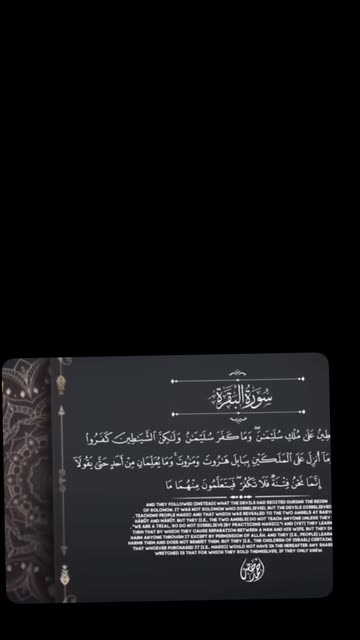 سُورَةُ الْبَقَرَةِ
عَلَىٰ مُلْكِ سُلَيْمَٰنَ ۖ وَمَا كَفَرَ سُلَيْمَٰنُ وَلَٰكِنَّ ٱلشَّيَٰطِينَ كَفَرُوا۟
أُنزِلَ عَلَى ٱلْمَلَكَيْنِ بِبَابِلَ هَٰرُوتَ وَمَٰرُوتَ ۚ وَمَا يُعَلِّمَانِ مِنْ أَحَدٍ حَتَّىٰ يَقُولَآ
إِنَّمَا نَحْنُ فِتْنَةٌ فَلَا تَكْفُرْ ۖ فَيَتَعَلَّمُونَ مِنْهُمَا مَا
AND THEY FOLLOWED [INSTEAD] WHAT THE DEVILS HAD RECITED DURING THE REIGN
OF SOLOMON. IT WAS NOT SOLOMON WHO DISBELIEVED, BUT THE DEVILS DISBELIEVED
, TEACHING PEOPLE MAGIC AND THAT WHICH WAS REVEALED TO THE TWO ANGELS AT
HĀRŪT AND MĀRŪT. BUT THEY [I.E., THE TWO ANGELS] DO NOT TEACH ANYONE UNLESS THEY
"WE ARE A TRIAL, SO DO NOT DISBELIEVE [BY PRACTICING MAGIC]." AND [YET] THEY LEARN
THEM THAT BY WHICH THEY CAUSE SEPARATION BETWEEN A MAN AND HIS WIFE. BUT THEY DO
HARM ANYONE THROUGH IT EXCEPT BY PERMISSION OF ALLĀH. AND THEY [I.E., PEOPLE] LEARN
HARMS THEM AND DOES NOT BENEFIT THEM. BUT THEY [I.E., THE CHILDREN OF ISRAEL]
THAT WHOEVER PURCHASED IT [I.E., MAGIC] WOULD NOT HAVE IN THE HEREAFTER ANY SHARE
WRETCHED IS THAT FOR WHICH THEY SOLD THEMSELVES, IF THEY ONLY KNEW.